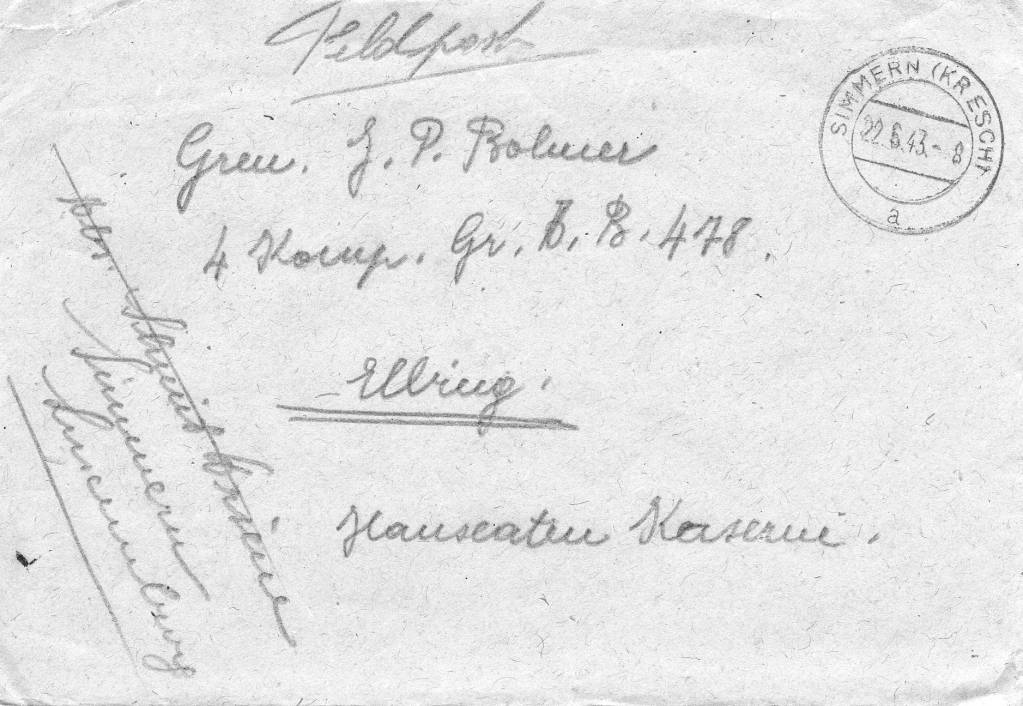 Feldpost
SIMMERN (KR ESCH)
22.6.43.-8
a
Gren. J. P. Bolmer
4 Komp. Gr. E. B. 478.
Elbing.
Hanseaten Kaserne.
Abs.
Simmern
Luxemburg